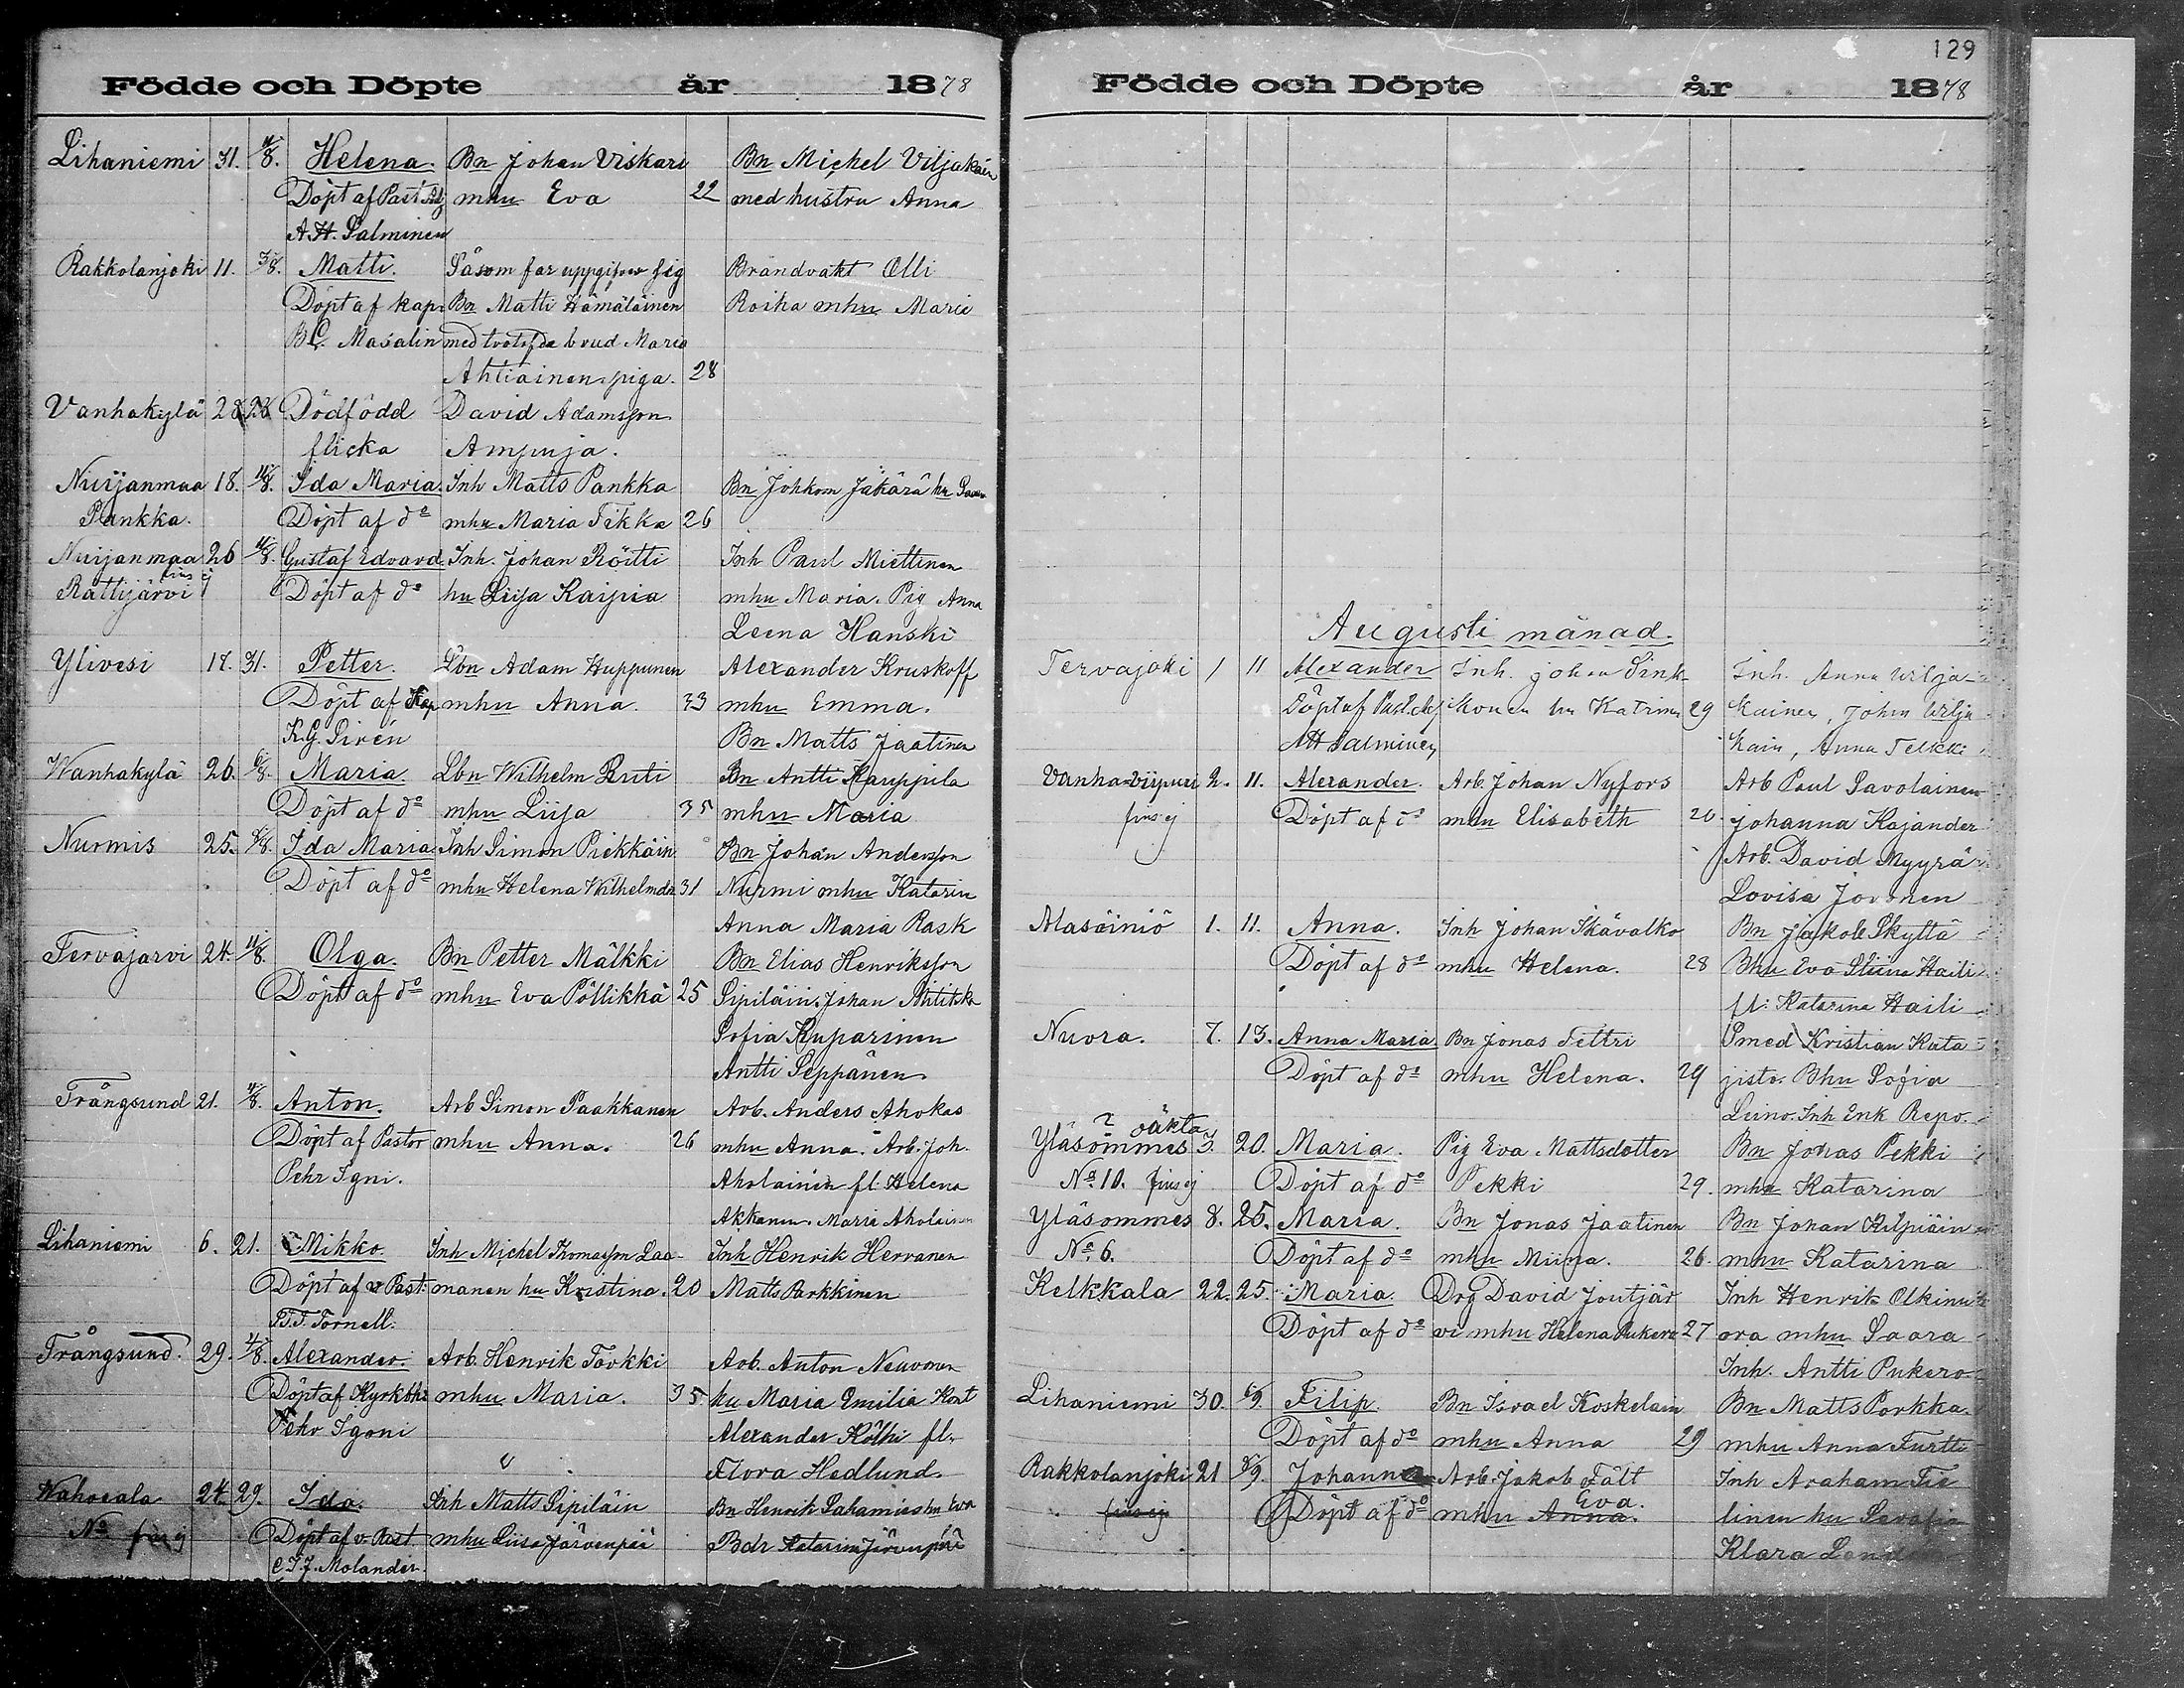 Födde och Döpte år 1878
Lihaniemi 31. 4/8. Helena. Bn Johan Viskari Bn Michel Viljakain
Döpt af Past. Adj mhu Eva 22 med hustru Anna
A.H. Salminen
Rakkolanjoki 11. 3/8. Matti. Såsom far uppgifver sig Brandvakt Olli
Döpt af kap. Bn Matti Hämäläinen Roiha mhu Maria
Masalin med brud Maria
Ahtiainen piga. 28
Vanhakylä 28 Dödfödd David Adamsson
flicka Ampuja.
Nuijanmaa 18. 11/8. Ida Maria. Inh Matts Pankka Bn Jäkärä hu
Pankka. Döpt af do mhu Maria Tikka 26
Nuijanmaa 26 11/8. Gustaf Edvard. Inh. Johan Röitti Inh Paul Miettinen
Rättijärvi fins ej Döpt af do hu Liisa Kaipia mhu Maria. Pig Anna
Leena Hanski
Ylivesi 17. 31. Petter. Lbn Adam Huppunen Alexander Kruskoff
Döpt af Kap mhu Anna. 33 mhu Emma.
K.G. Sirén Bn Matts Jaatinen
Wanhakylä 26. 6/8. Maria Lbn Wilhelm Ruti Bn Antti Kauppila
Döpt af do mhu Liisa 35 mhu Maria
Nurmis 25. 8/8. Ida Maria Inh Simon Piekkäin Bn Johan Andersson
Döpt af do mhu Helena Wilhelmdr 31 Nurmi mhu Katarin
Anna Maria Rask
Tervajärvi 24. 11/8. Olga. Bn Petter Mälkki Bn Elias Henriksson
Döpt af do mhu Eva Pöllikkä 25 Sipiläin. Johan
Sofia Ruparinen
Antti Seppänen
Trångsund 21. 4/8. Anton. Arb Simon Paakkanen Arb. Anders Ahokas
Döpt af Pastor mhu Anna. 26 mhu Anna. Arb. Joh.
Pehr Igoni. Aholainen fl. Helena
Akkanen. Maria Aholainen
Lihaniemi 6. 21. Mikko. Inh Michel Thomasson Laa- Inh Henrik Hervanen
Döpt af v Past. manen hu Kristina. 20 Matts Parkkinen
F.F. Tornell.
Trångsund. 29. 4/8. Alexander. Arb. Henrik Torkki Arb. Anton Neuvonen
Döpt af Kyrkoh: mhu Maria. 35. hu Maria Emilia Kont
Pehr Igoni Alexander Kölhi fl.
Flora Hedlund.
Wahvala 24. 29. Ida. Inh Matts Sipiläin Bn Henrik Sahamies hu Eva
No fins ej Döpt af v. Past mhu Liisa Järvenpää Bdr Katarina Järvenpää
C.F.J. Molander.
129
Födde och Döpte år 1878
Augusti månad.
Tervajoki 1 11 Alexander Inh. Johan Sink- Inh. Anna Wilja-
Döpt af Past. adj konen hu Katrina 29 kainen, Johan Wilja
AH Salminen kain, Anna Telkki
Vanha-Viipuri 2. 11. Alexander. Arb. Johan Nyfors Arb Paul Savolainen
fins ej Döpt af do mhu Elisabeth 20 Johanna Kajander
Arb. David Myyrä
Lovisa Joronen
Alasäiniö 1. 11. Anna. Inh Johan Skävalko Bn Jakob Skyttä
Döpt af do mhu Helena. 28 Bhu Eva Stiina Haili
fl: Katarina Haili
Nuora. 7. 13. Anna Maria. Bn Jonas Tettri Smed Kristian Kata-
Döpt af do mhu Helena. 29 jisto. Bhu Sofia
Leino. Inh Enk Repo.
oäkta
Yläsommes 3. 20. Maria. Pig Eva Mattsdotter Bn Jonas Pekki
No 10. fins ej Döpt af do Pekki 29. mhu Katarina
Yläsommes 8. 25. Maria. Bn Jonas Jaatinen Bn Johan Hilpiäin
No 6. Döpt af do mhu Miina. 26. mhu Katarina
Kelkkala 22. 25. Maria Drg David Joutjär Inh Henrik Olkinu
Döpt af do vi mhu Helena Pukero 27 ora mhu Saara
Inh. Antti Pukero
Lihaniemi 30. 6/9. Filip. Bn Israel Koskelain Bn Matts Porkka.
Döpt af do mhu Anna 29 mhu Anna Turtti
Rakkolanjoki 21 8/9. Johanna Arb. Jakob Fält Inh Araham Tie
fins ej Döpt af do mhu Anna. Eva. linen hu Serafia
Klara